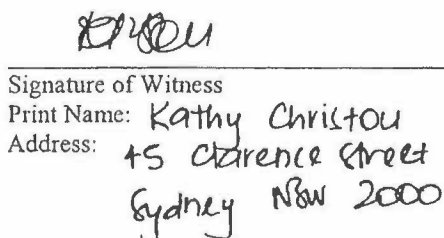 Signature of Witness
Print Name: Kathy Christou
Address: 45 Clarence Street
Sydney NSW 2000